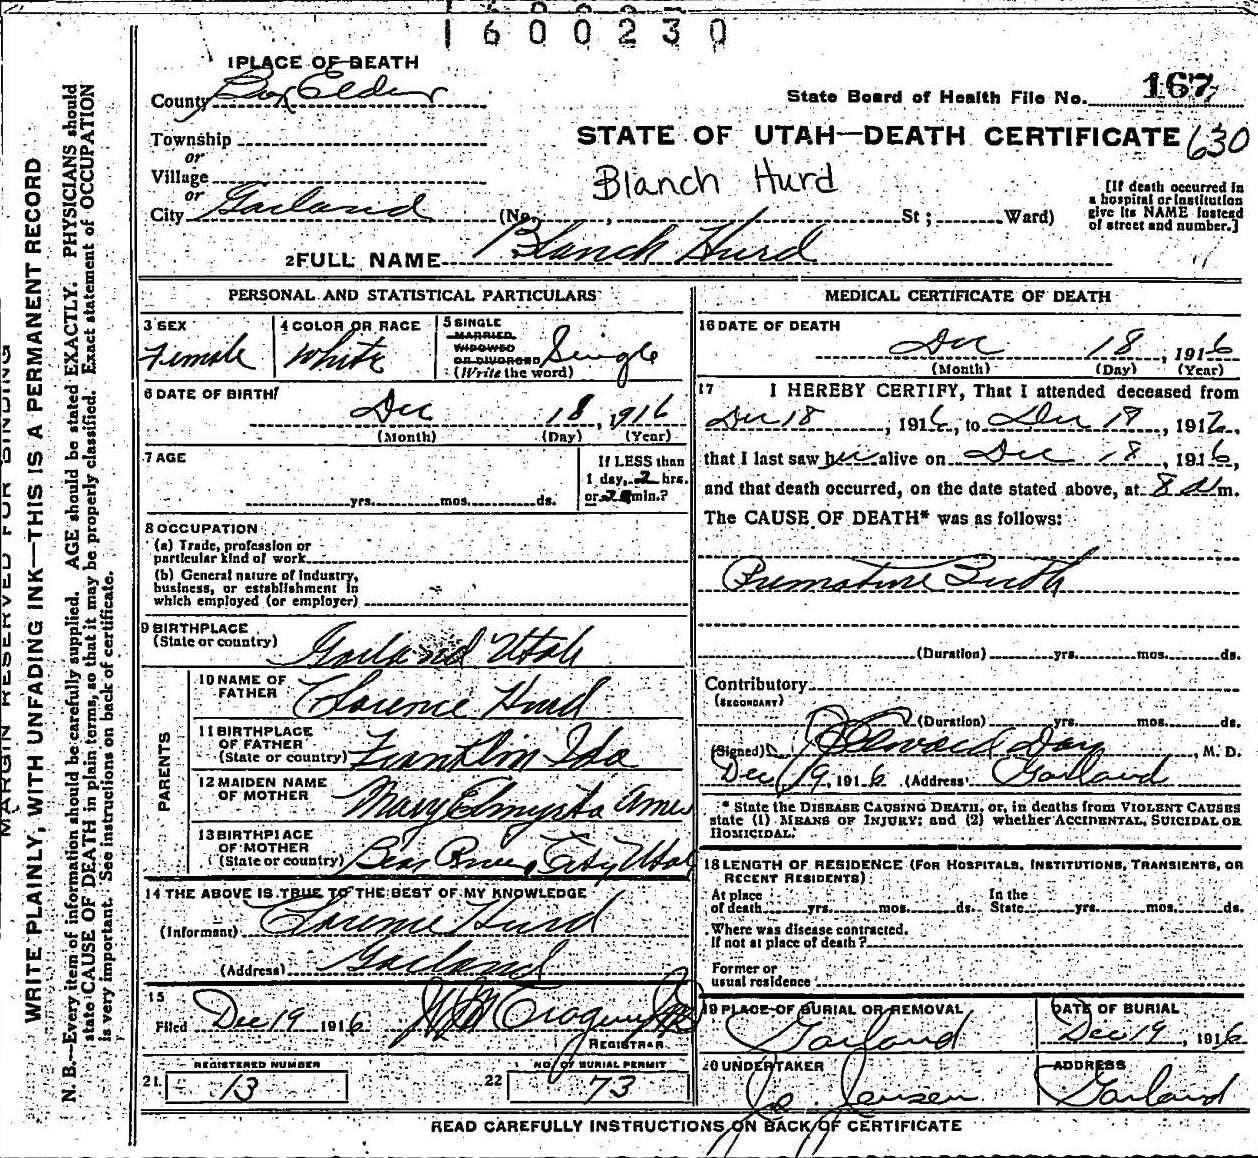 1600230
1 PLACE OF DEATH
County Box Elder
State Board of Health File No. 167
Township
or
STATE OF UTAH—DEATH CERTIFICATE 630
Village
or
Blanch Hurd
City Garland (No. , St ; Ward)
[If death occurred in
a hospital or institution
give its NAME instead
of street and number.]
2 FULL NAME Blanch Hurd
PERSONAL AND STATISTICAL PARTICULARS
3 SEX
Female
4 COLOR OR RACE
White
5 SINGLE
MARRIED
WIDOWED
OR DIVORCED
(Write the word)
Single
6 DATE OF BIRTH
Dec 18, 1916
(Month) (Day) (Year)
7 AGE
yrs. mos. ds.
If LESS than
1 day, 2 hrs.
or min.?
8 OCCUPATION
(a) Trade, profession or
particular kind of work
(b) General nature of industry,
business, or establishment in
which employed (or employer)
9 BIRTHPLACE
(State or country) Garland Utah
PARENTS
10 NAME OF
FATHER Clarence Hurd
11 BIRTHPLACE
OF FATHER
(State or country) Franklin Ida
12 MAIDEN NAME
OF MOTHER Mary Elmyrta Ames
13 BIRTHPLACE
OF MOTHER
(State or country) Bear River City Utah
14 THE ABOVE IS TRUE TO THE BEST OF MY KNOWLEDGE
(Informant) Clarence Hurd
(Address) Garland
15
Filed Dec 19 1916
REGISTRAR
REGISTERED NUMBER
21. 13
NO. OF BURIAL PERMIT
22 73
MEDICAL CERTIFICATE OF DEATH
16 DATE OF DEATH
Dec 18, 1916
(Month) (Day) (Year)
17 I HEREBY CERTIFY, That I attended deceased from
Dec 18, 1916, to Dec 18, 1916,
that I last saw her alive on Dec 18, 1916,
and that death occurred, on the date stated above, at 8 m.
The CAUSE OF DEATH* was as follows:
Premature Birth
(Duration) yrs. mos. ds.
Contributory
(SECONDARY)
(Duration) yrs. mos. ds.
(Signed) Day, M. D.
Dec 19, 1916 (Address) Garland
* State the DISEASE CAUSING DEATH, or, in deaths from VIOLENT CAUSES
state (1) MEANS OF INJURY; and (2) whether ACCIDENTAL, SUICIDAL OR
HOMICIDAL.
18 LENGTH OF RESIDENCE (FOR HOSPITALS, INSTITUTIONS, TRANSIENTS, OR
RECENT RESIDENTS)
At place In the
of death yrs. mos. ds. State yrs. mos. ds.
Where was disease contracted,
If not at place of death?
Former or
usual residence
19 PLACE OF BURIAL OR REMOVAL
Garland
DATE OF BURIAL
Dec 19, 1916
20 UNDERTAKER
Jensen
ADDRESS
Garland
READ CAREFULLY INSTRUCTIONS ON BACK OF CERTIFICATE
MARGIN RESERVED FOR BINDING
WRITE PLAINLY, WITH UNFADING INK—THIS IS A PERMANENT RECORD
N. B.—Every item of information should be carefully supplied. AGE should be stated EXACTLY. PHYSICIANS should
state CAUSE OF DEATH in plain terms, so that it may be properly classified. Exact statement of OCCUPATION
is very important. See instructions on back of certificate.